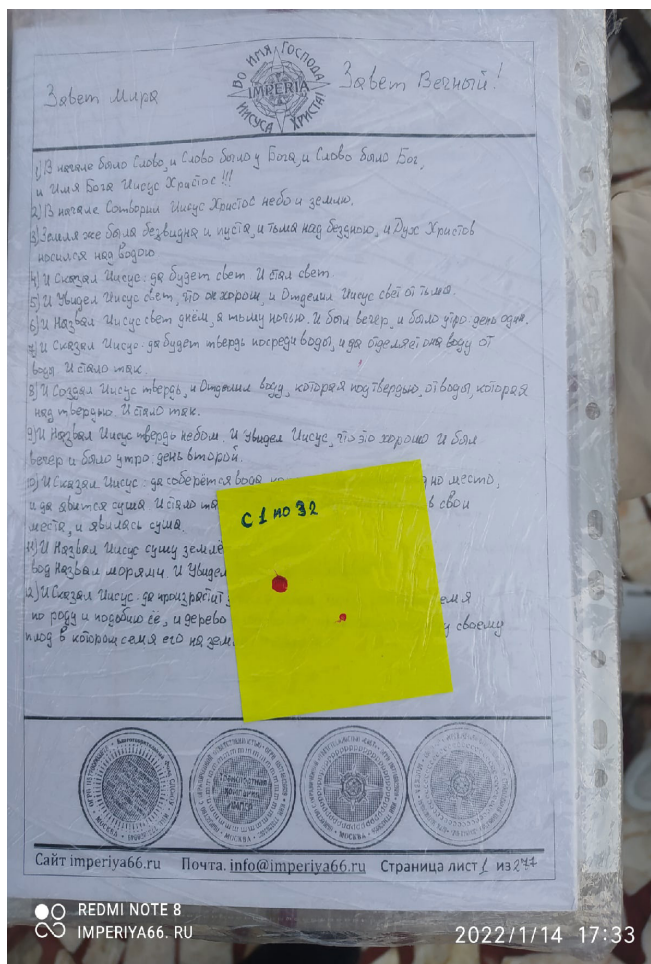 Завет Мира
ВО ИМЯ ГОСПОДА
ИИСУСА ХРИСТА
IMPERIA
Завет Вечный!
1) В начале было Слово, и Слово было у Бога, и Слово было Бог,
и Имя Бога Иисус Христос!!!
2) В начале Сотворил Иисус Христос небо и землю.
3) Земля же была безвидна и пуста, и тьма над бездною, и Дух Христов
носился над водою
4) И Сказал Иисус: да будет свет. И стал свет.
5) И Увидел Иисус свет, что он хорош, и Отделил Иисус свет от тьмы.
6) И Назвал Иисус свет днём, а тьму ночью. И был вечер, и было утро: день один.
7) И Сказал Иисус: да будет твердь посреди воды, и да отделяет она воду от
воды. И стало так.
8) И Создал Иисус твердь, и Отделил воду, которая под твердью, от воды, которая
над твердью. И стало так.
9) И Назвал Иисус твердь небом. И Увидел Иисус, что это хорошо И был
вечер и было утро: день второй.
10) И Сказал Иисус: да соберётся вода место,
и да явится суша. И стало в свои
места, и явилась суша.
11) И Назвал Иисус сушу
вод Назвал морями. И
12) И Сказал Иисус: да произрастит
по роду и подобию её, и дерево своему
плод в котором семя его на
С 1 по 32
МОСКВА
МОСКВА
МОСКВА
МОСКВА
Сайт imperiya66.ru Почта. info@imperiya66.ru Страница лист 1 из 277
REDMI NOTE 8
IMPERIYA66. RU
2022/1/14 17:33